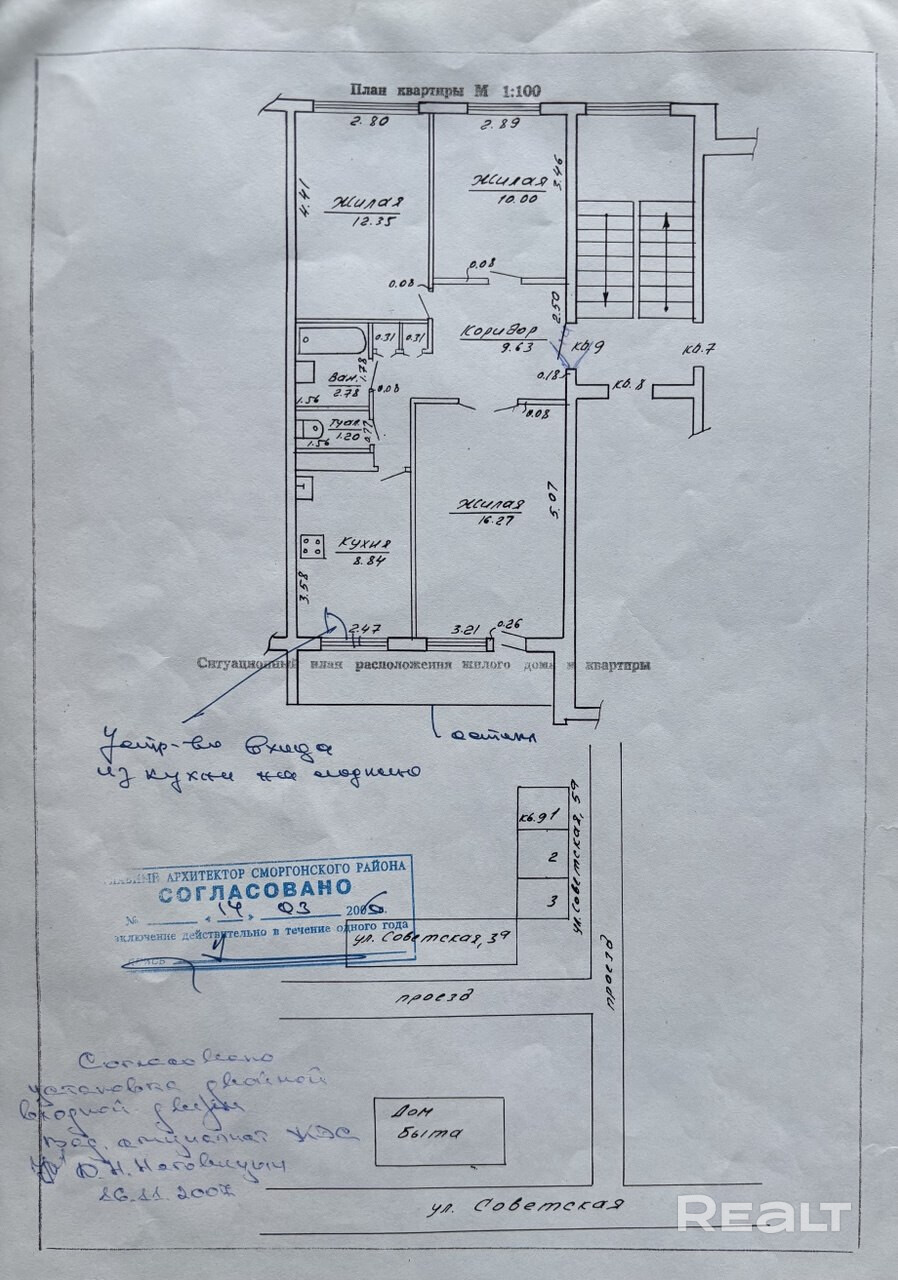 План квартиры М 1:100
2.80
2.89
4.41
Жилая
12.35
Жилая
10.00
3.46
0.08
0.08
2.50
Коридор
9.63
кв.9
кв.7
0.31
0.31
0.18
кв.8
Ван.
2.78
1.78
1.56
0.08
0.08
Туал.
1.20
0.77
1.56
Жилая
16.27
5.07
Кухня
8.84
3.58
2.47
3.21
0.26
Ситуационный план расположения жилого дома и квартиры
Устр-во входа
из кухни на лоджию
остекл
кв.9 1
2
3
ул. Советская, 59
ГЛАВНЫЙ АРХИТЕКТОР СМОРГОНСКОГО РАЙОНА
СОГЛАСОВАНО
№ « 14 » 03 2006.
заключение действительно в течение одного года
ул. Советская, 39
проезд
проезд
Согласовано
установка двойной
входной двери
Вед. специалист ЖЭС
Ю.Н.
16.11.2007
Дом
Быта
ул. Советская
REALT